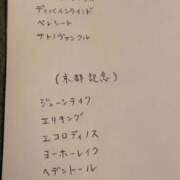 ディバインウインド
ペレシート
サトノヴァンクル
(京都記念)
ジューンテイク
エリキング
エコロディノス
ヨーホーレイク
ヘデントール